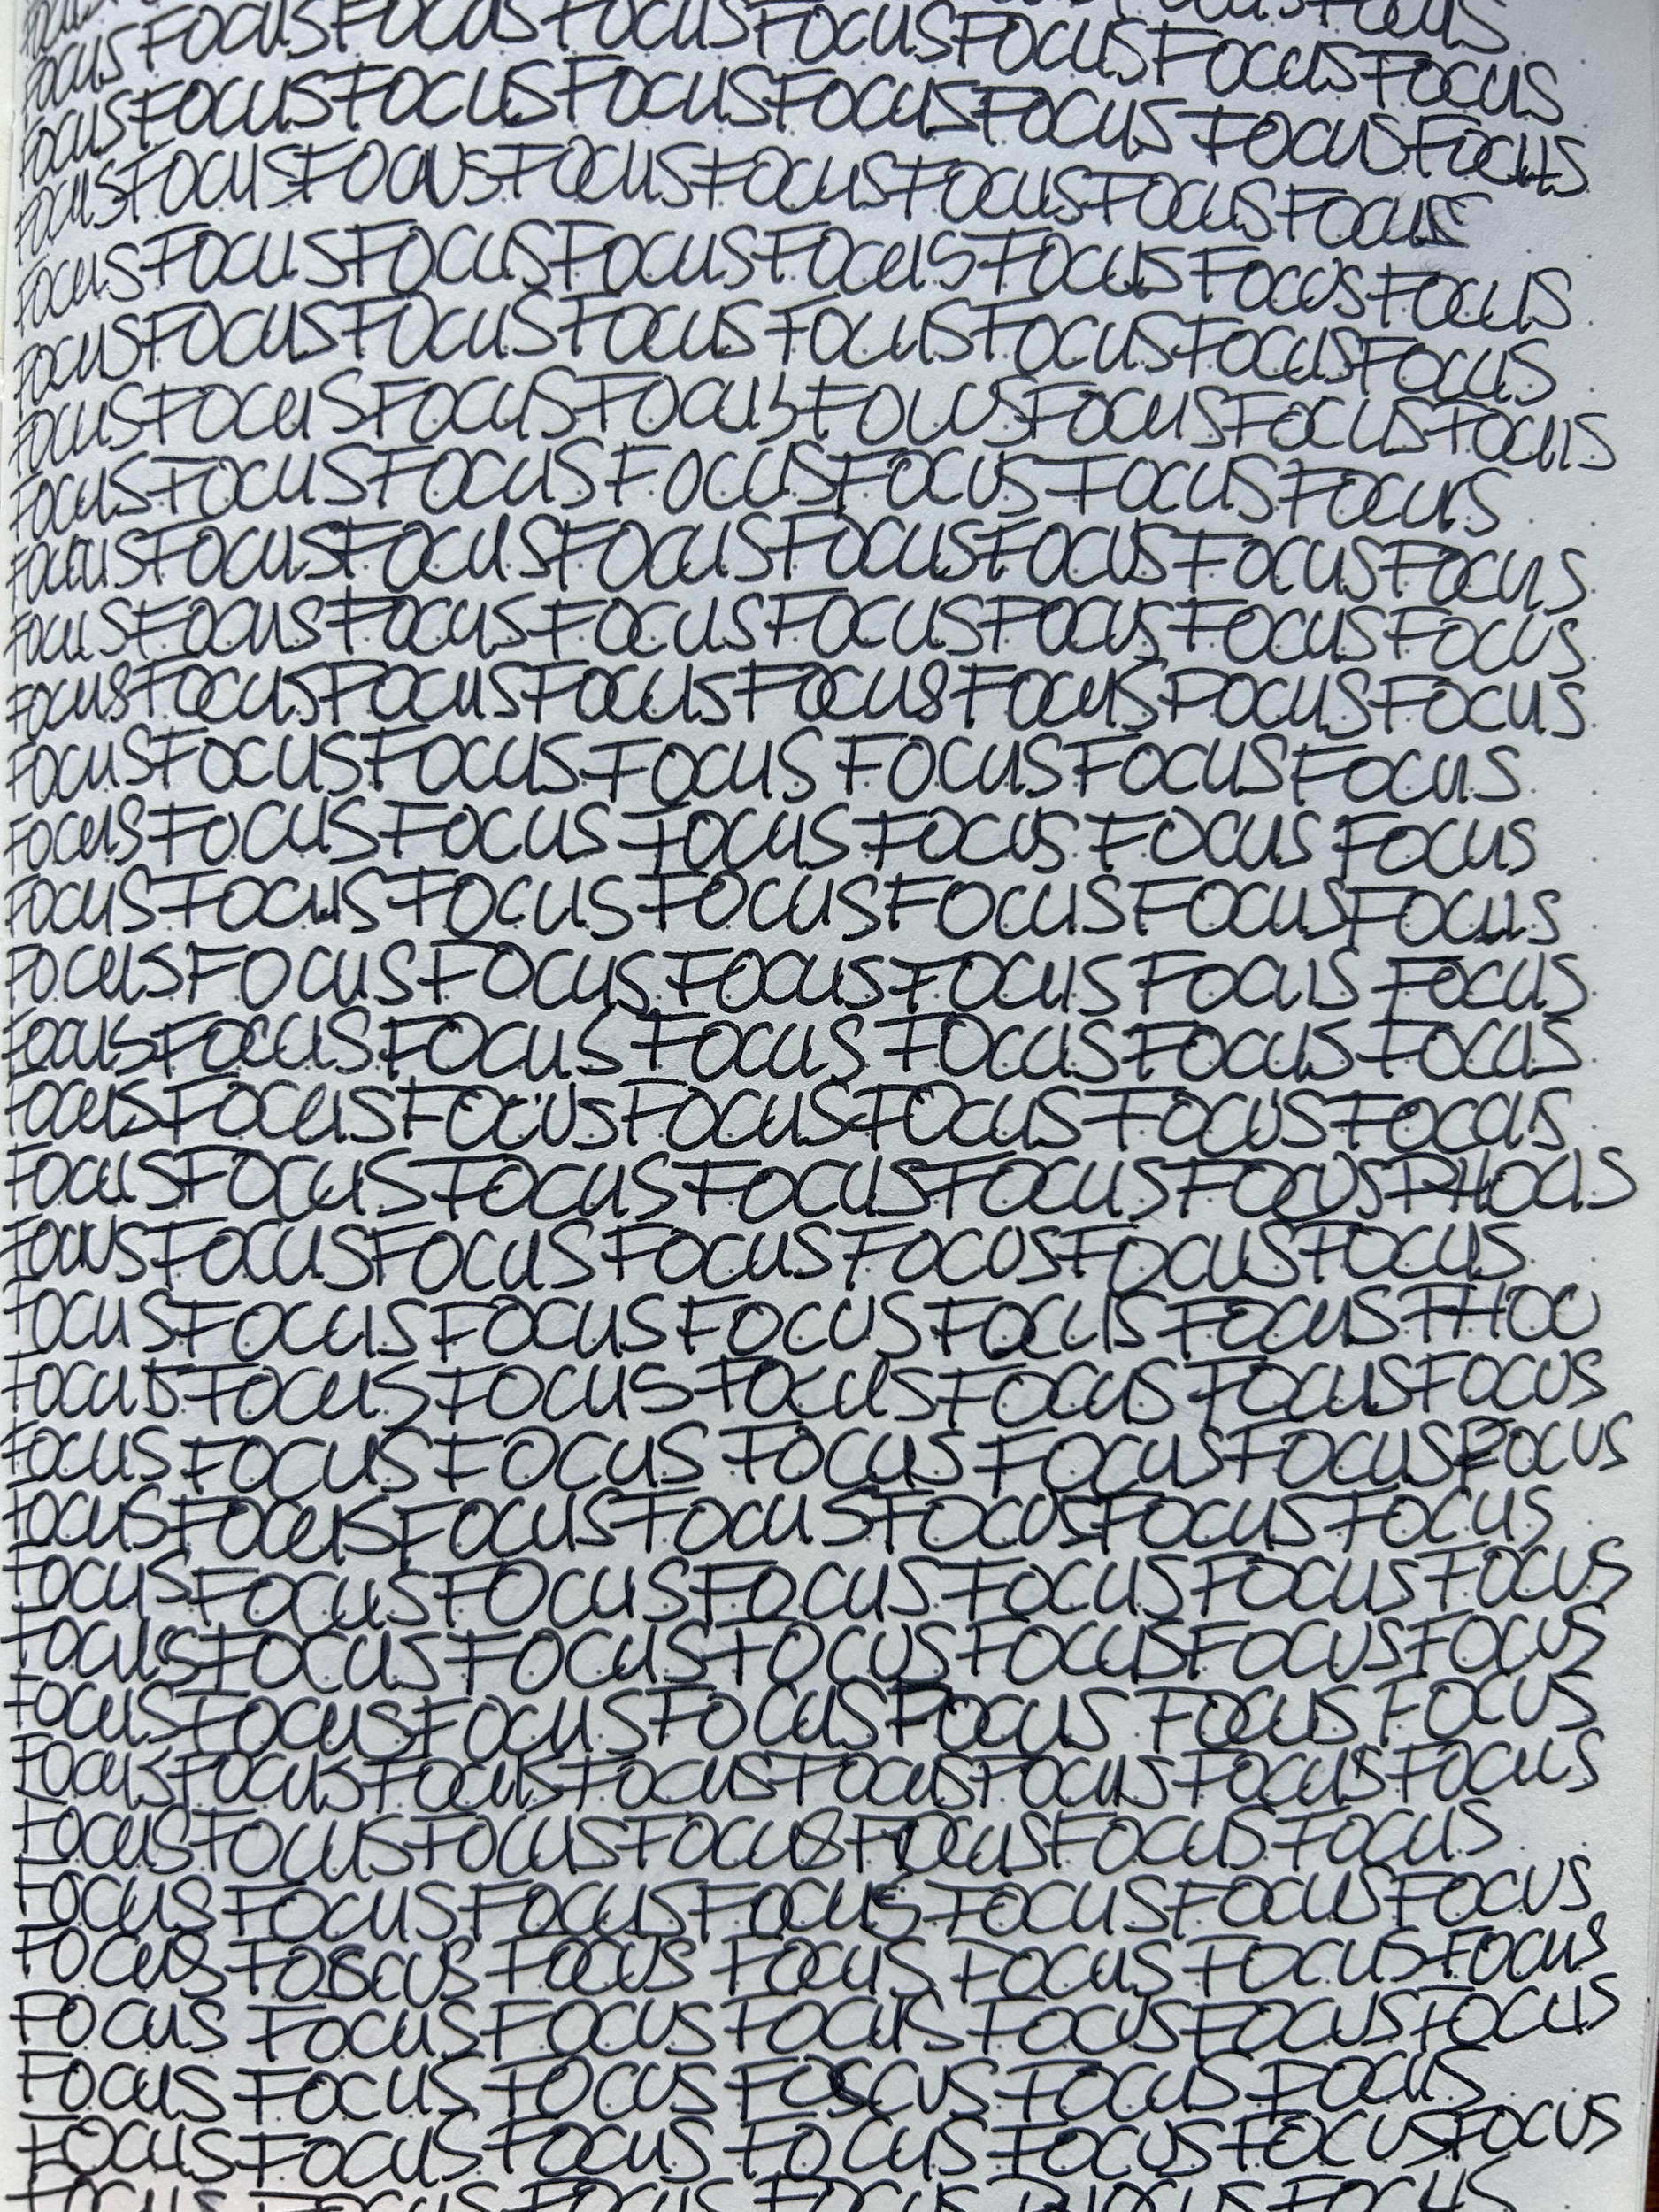 FOCUSFOCUSFOCUS
FOCUSFOCUSFOCUSFOCUSFOCUSFOCUSFOCUSFOCUS
FOCUSFOCUSFOCUSFOCUSFOCUSFOCUSFOCUSFOCUS
FOCUSFOCUSFOCUSFOCUSFOCUSFOCUSFOCUSFOCUS
FOCUSFOCUSFOCUSFOCUSFOCUSFOCUSFOCUSFOCUS
FOCUSFOCUSFOCUSFOCUSFOCUSFOCUSFOCUSFOCUS
FOCUSFOCUSFOCUSFOCUSFOCUSFOCUSFOCUSFOCUS
FOCUSFOCUSFOCUSFOCUSFOCUSFOCUSFOCUS
FOCUSFOCUSFOCUSFOCUSFOCUSFOCUSFOCUSFOCUS
FOCUSFOCUSFOCUSFOCUSFOCUSFOCUSFOCUSFOCUS
FOCUSFOCUSFOCUSFOCUSFOCUSFOCUSFOCUSFOCUS
FOCUSFOCUSFOCUSFOCUS FOCUSFOCUSFOCUS
FOCUSFOCUSFOCUS FOCUS FOCUS FOCUS FOCUS
FOCUSFOCUSFOCUSFOCUSFOCUSFOCUSFOCUS
FOCUSFOCUSFOCUSFOCUSFOCUS FOCUS FOCUS
FOCUSFOCUSFOCUSFOCUS FOCUSFOCUSFOCUS
FOCUSFOCUSFOCUSFOCUSFOCUSFOCUSFOCUS
FOCUSFOCUSFOCUSFOCUSFOCUSFOCUSPHOCUS
FOCUSFOCUSFOCUSFOCUSFOCUSFOCUSFOCUS
FOCUSFOCUSFOCUSFOCUSFOCUSFOCUSFHOC
FOCUSFOCUSFOCUSFOCUSFOCUSFOCUSFOCUS
FOCUSFOCUSFOCUS FOCUS FOCUSFOCUSFOCUS
FOCUSFOCUSFOCUSFOCUSFOCUSFOCUSFOCUS
FOCUSFOCUSFOCUSFOCUSFOCUSFOCUSFOCUS
FOCUSFOCUSFOCUSFOCUSFOCUSFOCUSFOCUS
FOCUSFOCUSFOCUSFOCUSFOCUS FOCUS FOCUS
FOCUSFOCUSFOCUSFOCUSFOCUSFOCUSFOCUSFOCUS
FOCUSFOCUSFOCUSFOCUSFOCUSFOCUSFOCUS
FOCUSFOCUSFOCUSFOCUSFOCUSFOCUSFOCUS
FOCUS FOCUS FOCUS FOCUS FOCUSFOCUSFOCUS
FOCUS FOCUSFOCUSFOCUSFOCUSFOCUSFOCUS
FOCUS FOCUS FOCUS FOSCUS FOCUS FOCUS
FOCUSFOCUSFOCUSFOCUSFOCUSFOCUSFOCUS